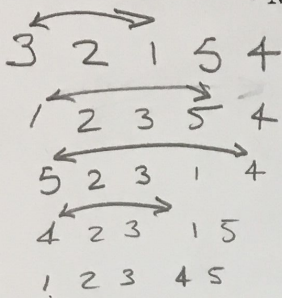 3 2 1 5 4
1 2 3 5 4
5 2 3 1 4
4 2 3 1 5
1 2 3 4 5